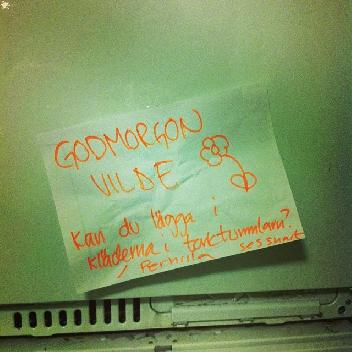 GODMORGON
VILDE
Kan du lägga i
kläderna i torktumlarn?
/ Pernilla sessnart